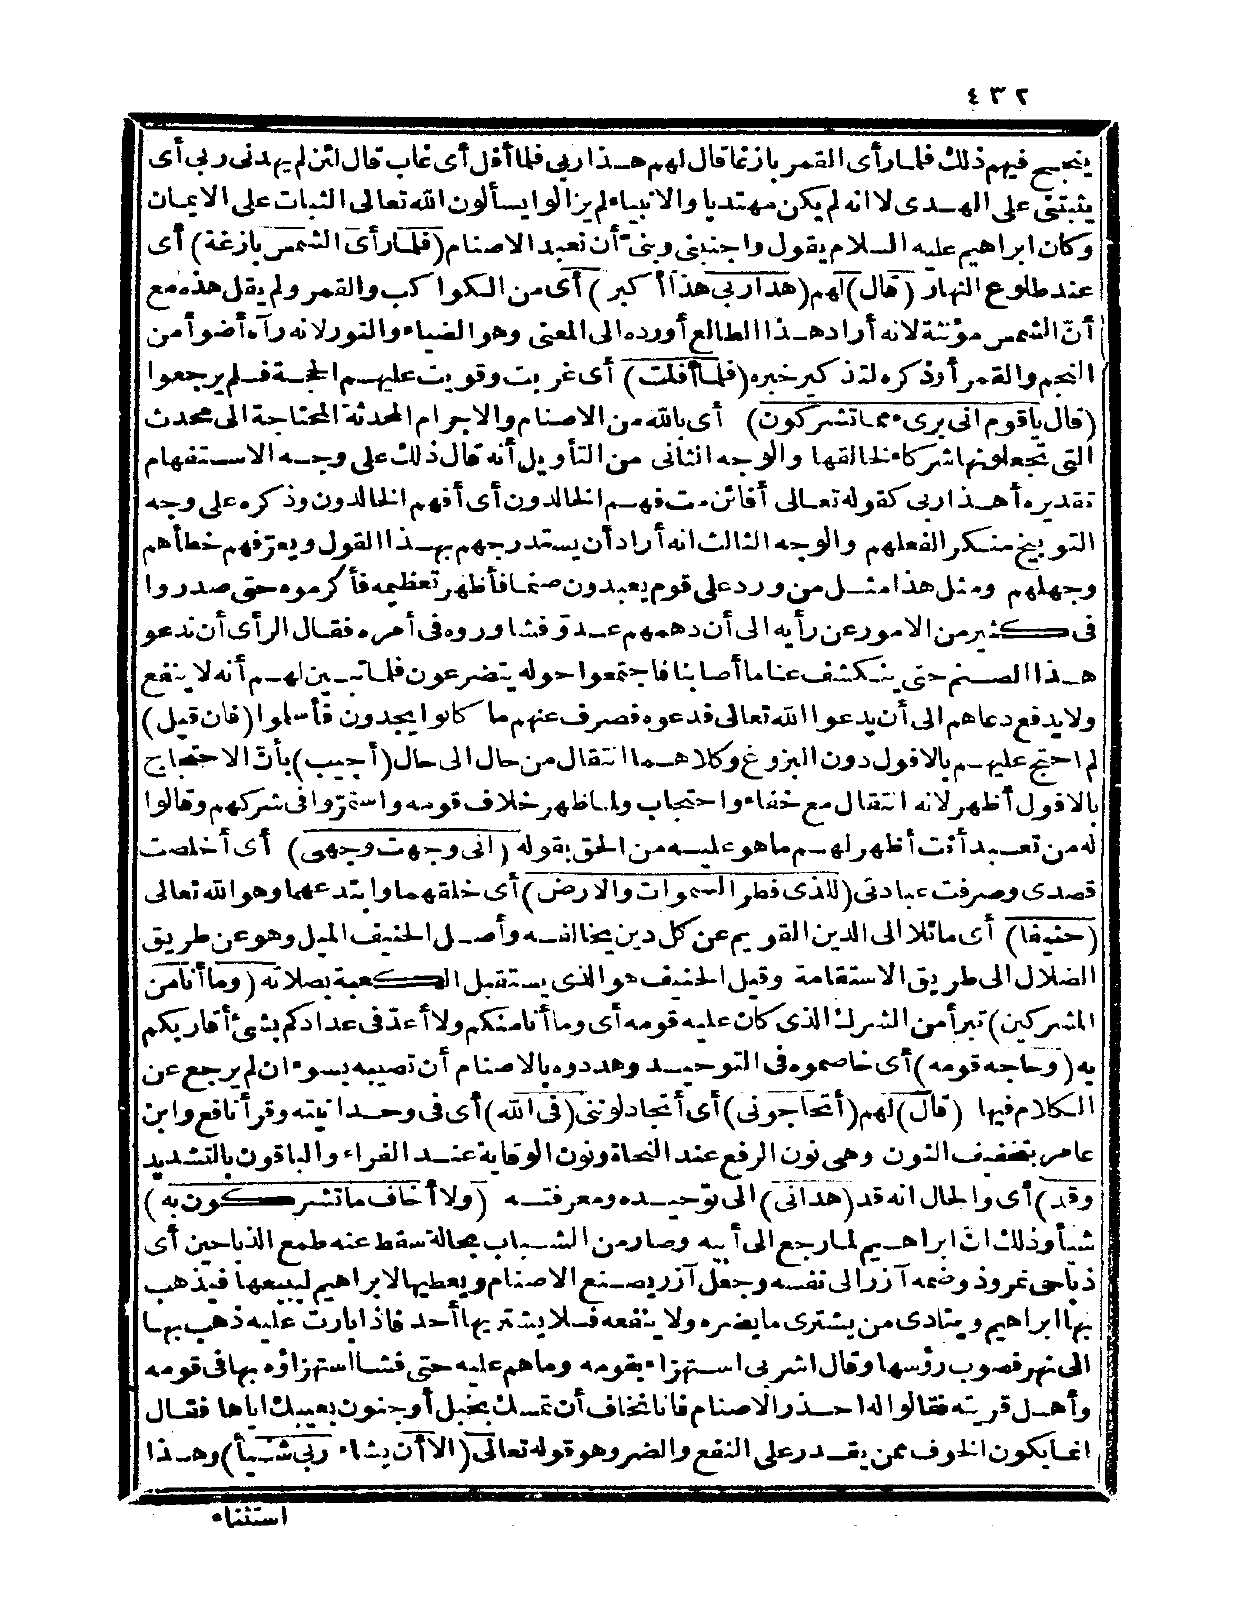 ٤٣٢
ينجح فيهم ذلك فلما رأى القمر بازغا قال لهم هذا ربى فلما أفل أى غاب قال لئن لم يهدنى ربى أى
يثبتنى على الهدى لا انه لم يكن مهتديا والانبياء لم يزالوا يسألون الله تعالى الثبات على الايمان
وكان ابراهيم عليه السلام يقول واجنبنى وبنىّ أن نعبد الاصنام (فلما رأى الشمس بازغة) أى
عند طلوع النهار (قال) لهم (هذا ربى هذا أكبر) أى من الكواكب والقمر ولم يقل هذه مع
أنّ الشمس مؤنثة لانه أراد هذا الطالع أورده الى المعنى وهو الضياء والنور لانه رآه أضوأ من
النجم والقمر أو ذكره لتذكير خبره (فلما أفلت) أى غربت وقويت عليهم الحجة فلم يرجعوا
(قال يا قوم انى برىء مما تشركون) أى بالله من الاصنام والاجرام المحدثة المحتاجة الى محدث
التى تجعلونها شركاء لخالقها والوجه الثانى من التأويل أنه قال ذلك على وجه الاستفهام
تقديره أهذا ربى كقوله تعالى أفائن مت فهم الخالدون أى أفهم الخالدون وذكره على وجه
التوبيخ منكر الفعلهم والوجه الثالث انه أراد أن يستدرجهم بهذا القول ويعرّفهم خطأهم
وجهلهم ومثل هذا مثل من ورد على قوم يعبدون صنما فأظهر تعظيمه فأكرموه حتى صدروا
فى كثير من الامور عن رأيه الى أن دهمهم عدوّ فشاوروه فى أمره فقال الرأى أن ندعو
هذا الصنم حتى ينكشف عنا ما أصابنا فاجتمعوا حوله يتضرعون فلما تبين لهم أنه لا ينفع
ولا يدفع دعاهم الى أن يدعوا الله تعالى فدعوه فصرف عنهم ما كانوا يجدون فأسلموا (فان قيل)
لم احتج عليهم بالافول دون البزوغ وكلاهما انتقال من حال الى حال (أجيب) بأنّ الاحتجاج
بالافول أظهر لانه انتقال مع خفاء واحتجاب ولما ظهر خلاف قومه واستمرّوا فى شركهم وقالوا
له من تعبد أنت أظهر لهم ما هو عليه من الحق بقوله (انى وجهت وجهى) أى أخلصت
قصدى وصرفت عبادتى (للذى فطر السموات والارض) أى خلقهما وابتدعهما وهو الله تعالى
(حنيفا) أى مائلا الى الدين القويم عن كل دين يخالفه وأصل الحنيف الميل وهو عن طريق
الضلال الى طريق الاستقامة وقيل الحنيف هو الذى يستقبل الكعبة بصلاته (وما أنا من
المشركين) تبرأ من الشرك الذى كان عليه قومه أى وما أنا منكم ولا أعدّ فى عدادكم بشئ أقاربكم
به (وحاجه قومه) أى خاصموه فى التوحيد وهددوه بالاصنام أن تصيبه بسوء ان لم يرجع عن
الكلام فيها (قال) لهم (أتحاجونى) أى أتجادلوننى (فى الله) أى فى وحدانيته وقرأ نافع وابن
عامر بتخفيف النون وهى نون الرفع عند النحاة ونون الوقاية عند القراء والباقون بالتشديد
(وقد) أى والحال انه قد (هدانى) الى توحيده ومعرفته (ولا أخاف ما تشركون به)
شيأ وذلك انّ ابراهيم لما رجع الى أبيه وصار من الشباب بحالة سقط عنه طمع الذباحين أى
ذباحى نمروذ وضمه آزر الى نفسه وجعل آزر يصنع الاصنام ويعطيها لابراهيم ليبيعها فيذهب
بها ابراهيم وينادى من يشترى ما يضره ولا ينفعه فلا يشتريها أحد فاذا بارت عليه ذهب بها
الى نهر فصوب رؤسها وقال اشربى استهزاء بقومه وما هم عليه حتى فشا استهزاؤه بها فى قومه
وأهل قريته فقالوا له احذر الاصنام فانا نخاف أن تمسك بخبل أو جنون بعيبك اياها فقال
انما يكون الخوف ممن يقدر على النفع والضر وهو قوله تعالى (الا أن يشاء ربى شيأ) وهذا
استثناء